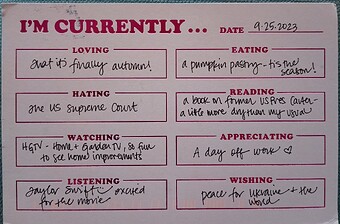 I'M CURRENTLY...
DATE 9.25.2023
LOVING
Just it's finally autumn!
EATING
a pumpkin pastry - tis the
season!
HATING
the US Supreme Court
READING
a book on former US Pres Carter-
a little more dry than my usual
WATCHING
HGTV - Home & Garden TV, so fun
to see home improvements
APPRECIATING
A day off work ♡
LISTENING
Taylor Swift excited
for the movie
WISHING
peace for Ukraine & the
world